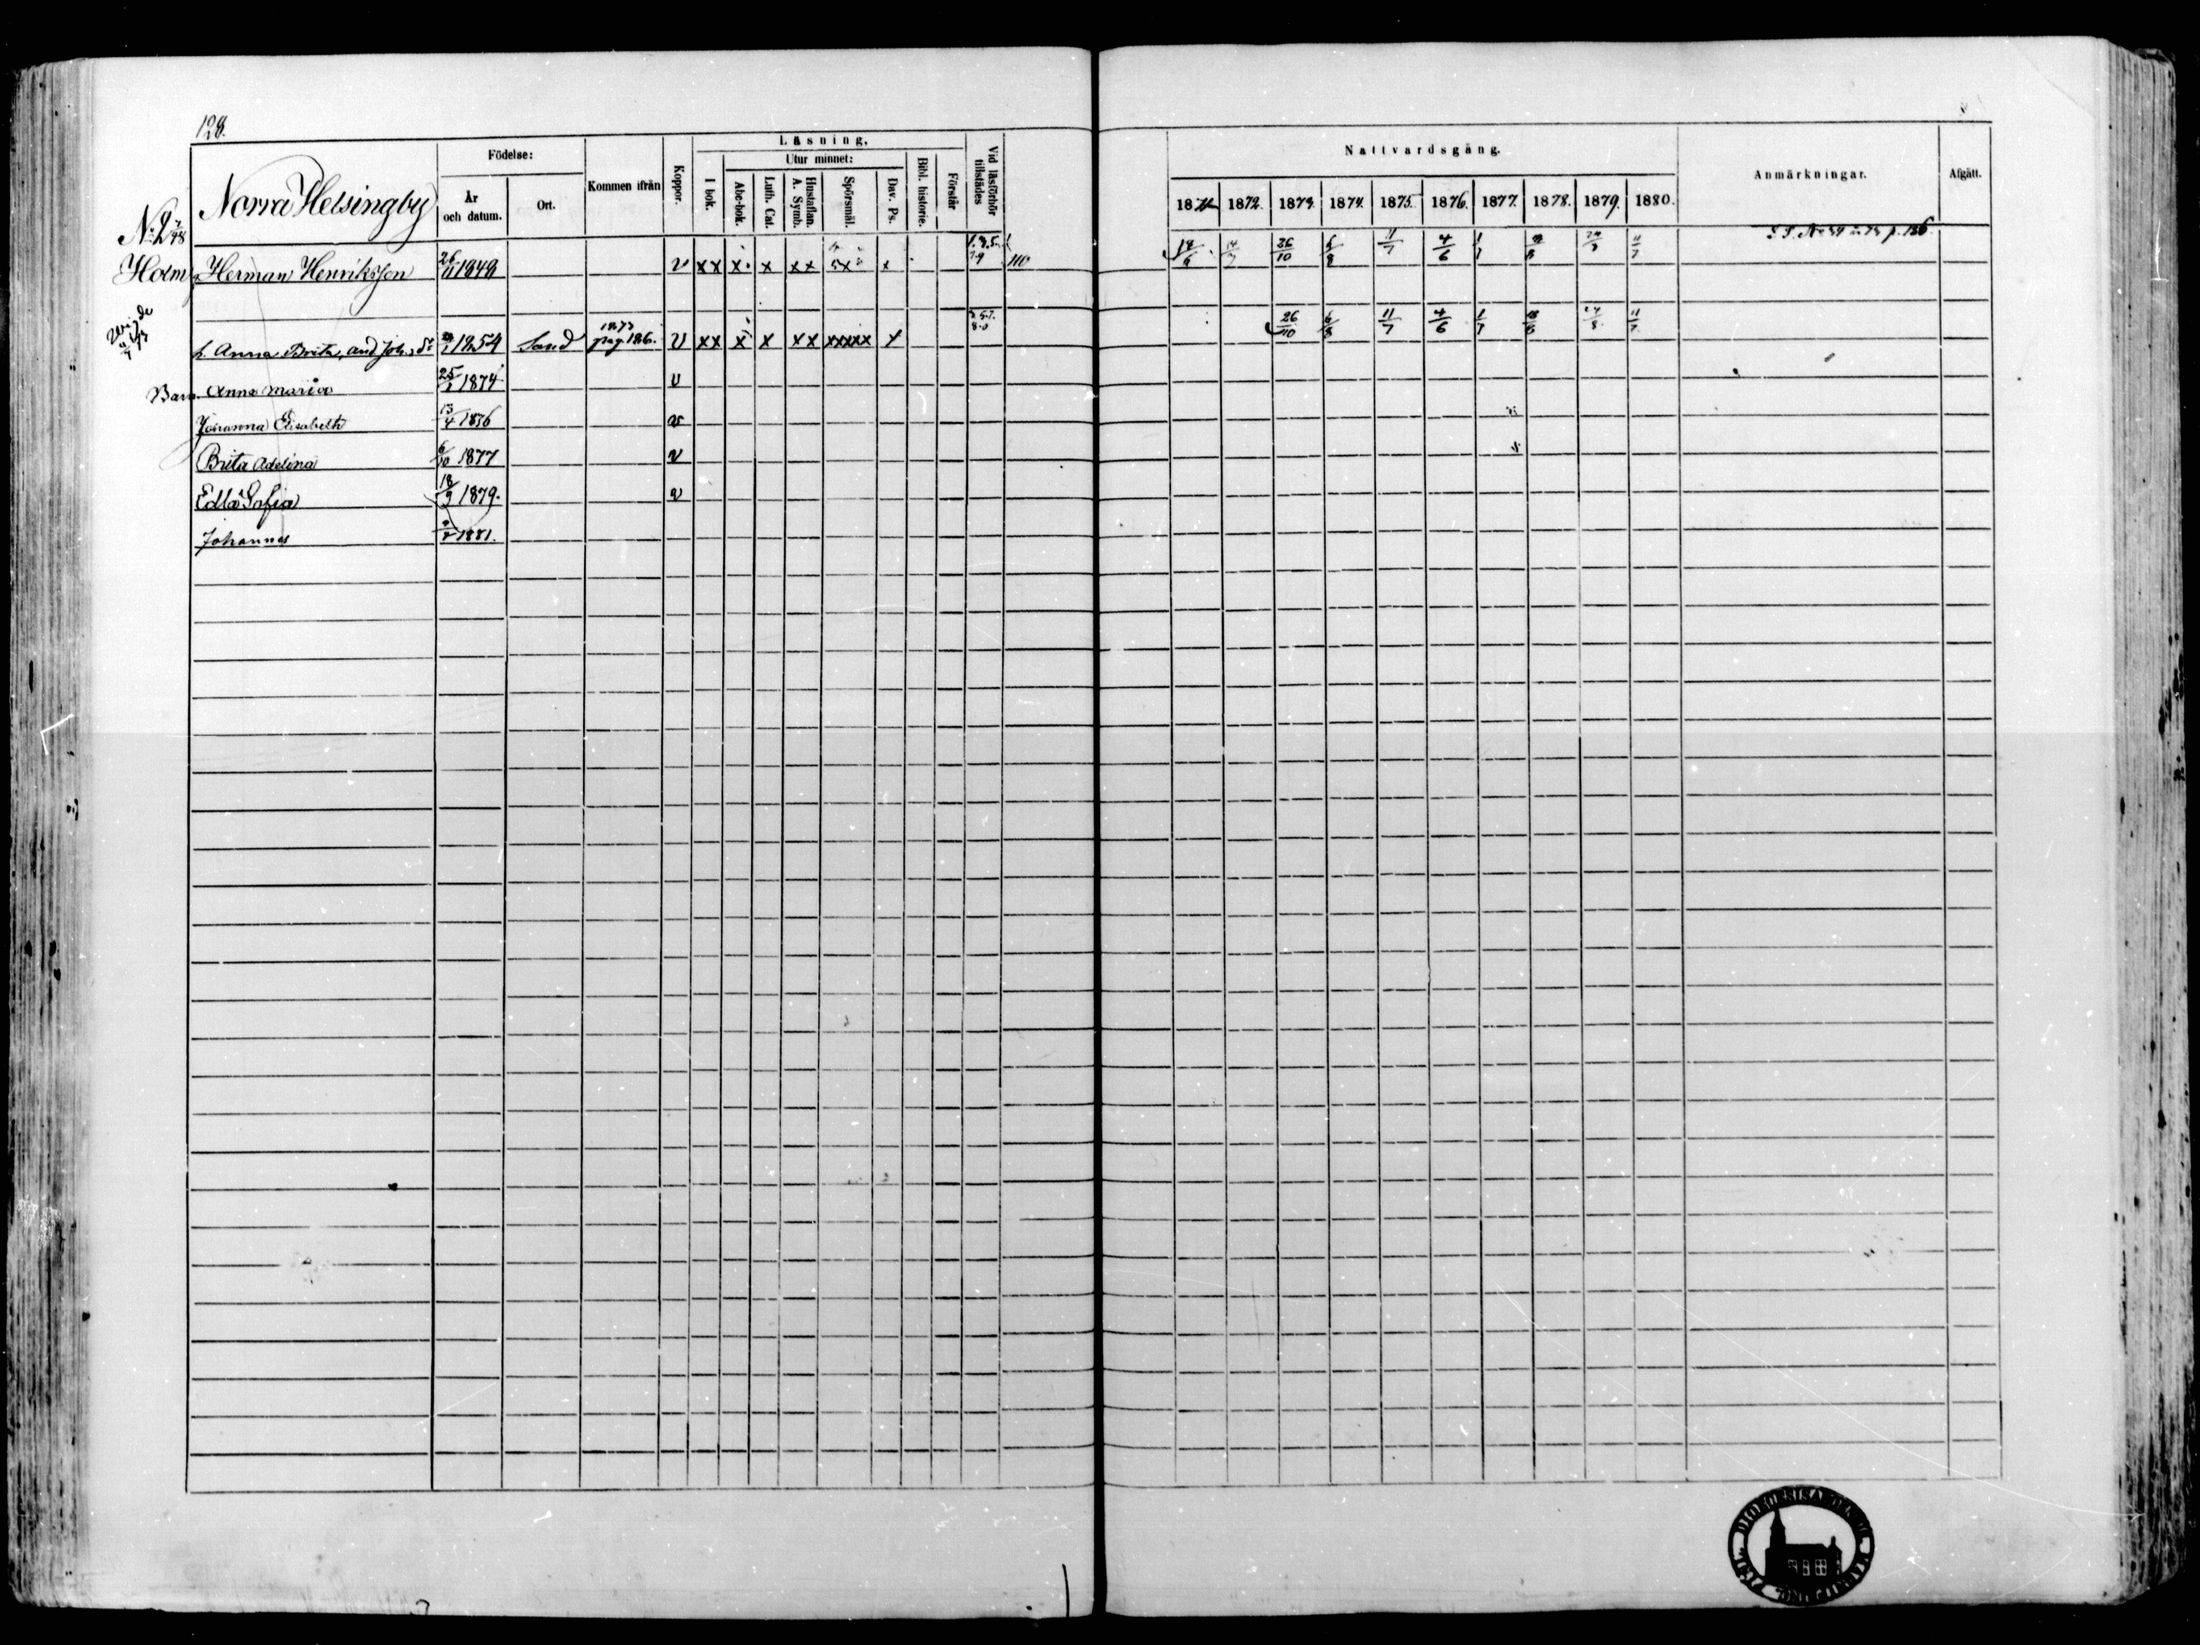 128.
Läsning,
Nattvardsgång.
Födelse:
Utur minnet:
Anmärkningar.
Afgått.
Norra Helsingby
År och datum.
Ort.
Kommen ifrån
Koppor.
I bok.
Abc-bok.
Luth. Cat.
Hustaflan. A. Symb.
Spörsmål.
Dav. Ps.
Bibl. historie.
Förstår
Vid läsförhör tillstädes
1871. 1872. 1873. 1874. 1875. 1876. 1877. 1878. 1879. 1880.
Holm Herman Henriksson 26/11 1849 v xx x x xx x x 110 26/10 6/8 11/7 4/6 1/7 11/7
p. 186.
1873
h. Anna Brita, And Joh.s dr 1854 Sand pag. 186. v xx x x xx xxxxx x 26/10 6/8 11/7 4/6 1/7 11/7
Barn Anna Maria 1874 v
Johanna Elisabeth 13/4 1876 v
Brita Adelina 6/10 1877 v
Edla Sofia 18/9 1879. v
Johannes 1881.